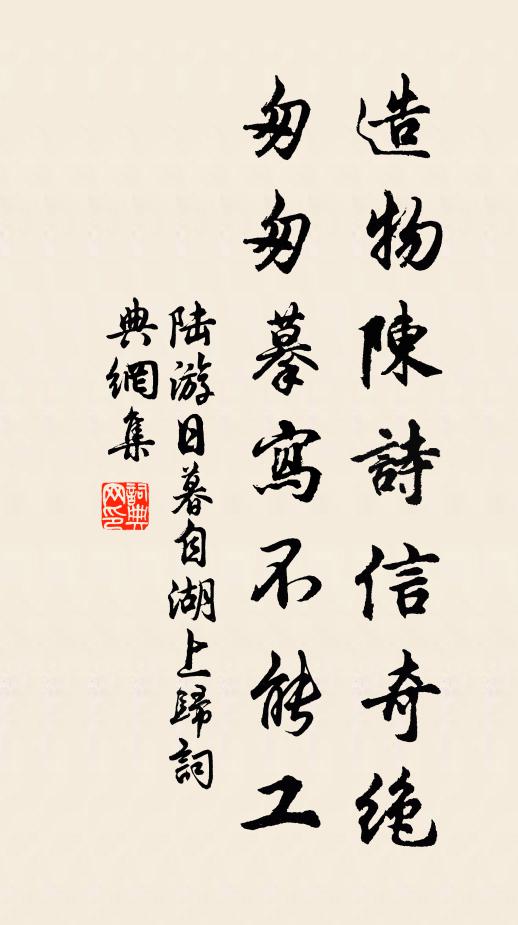 造物陳詩信奇絶
匆匆摹寫不能工
陸游日暮自湖上歸詞
典網集
詞典
网印